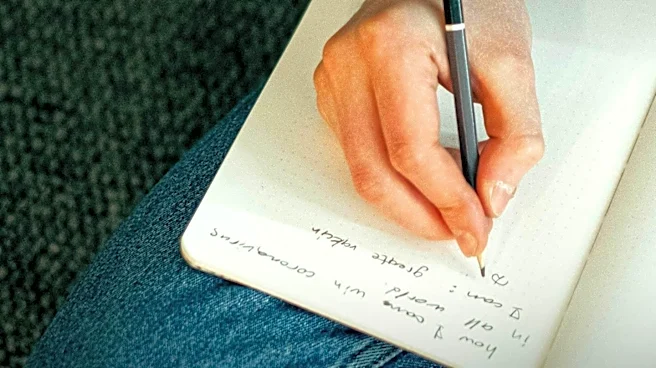 how I can win coronavirus
in all world.
I can: greate vakcin